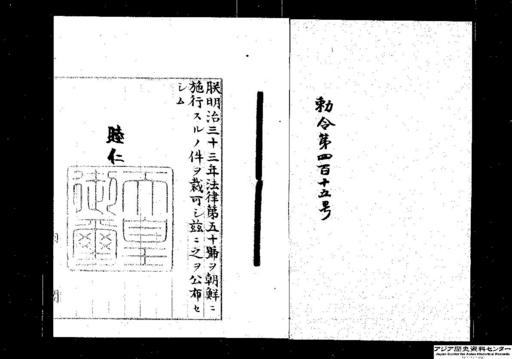 勅令第四百十五号
朕明治三十三年法律第五十號ヲ朝鮮ニ
施行スルノ件ヲ裁可シ茲ニ之ヲ公布セ
シム
睦仁
天皇
御璽
アジア歴史資料センター
Japan Center for Asian Historical Records